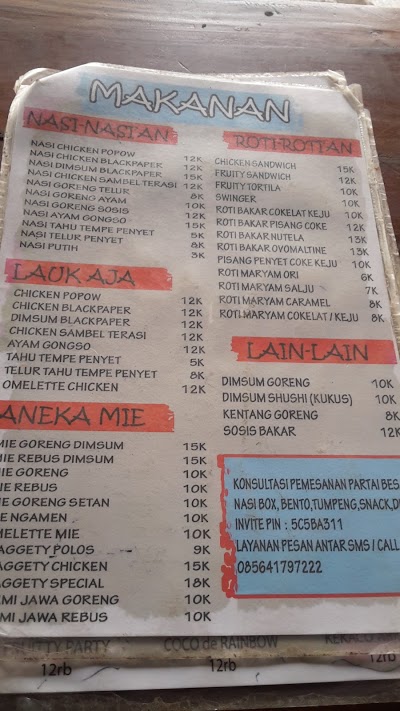 MAKANAN
NASI-NASIAN
NASI CHICKEN POPOW 12K
NASI CHICKEN BLACKPAPER 12K
NASI DIMSUM BLACKPAPER 15K
NASI CHICKEN SAMBEL TERASI 12K
NASI GORENG TELUR 8K
NASI GORENG AYAM 10K
NASI GORENG SOSIS 10K
NASI AYAM GONGSO 12K
NASI TAHU TEMPE PENYET 5K
NASI TELUR PENYET 8K
NASI PUTIH 3K
LAUK AJA
CHICKEN POPOW 12K
CHICKEN BLACKPAPER 12K
DIMSUM BLACKPAPER 12K
CHICKEN SAMBEL TERASI 12K
AYAM GONGSO 12K
TAHU TEMPE PENYET 5K
TELUR TAHU TEMPE PENYET 8K
OMELETTE CHICKEN 12K
ANEKA MIE
MIE GORENG DIMSUM 15K
MIE REBUS DIMSUM 15K
MIE GORENG 10K
MIE REBUS 10K
MIE GORENG SETAN 10K
IE NGAMEN 10K
MELETTE MIE 10K
AGGETY POLOS 9K
AGGETY CHICKEN 15K
AGGETY SPECIAL 18K
MI JAWA GORENG 10K
MI JAWA REBUS 10K
ROTI-ROTIAN
CHICKEN SANDWICH 15K
FRUITY SANDWICH 12K
FRUITY TORTILA 10K
SWINGER 10K
ROTI BAKAR COKELAT KEJU 10K
ROTI BAKAR PISANG COKE 12K
ROTI BAKAR NUTELA 13K
ROTI BAKAR OVOMALTINE 13K
PISANG PENYET COKE KEJU 10K
ROTI MARYAM ORI 6K
ROTI MARYAM SALJU 7K
ROTI MARYAM CARAMEL 8K
ROTI MARYAM COKELAT / KEJU 8K
LAIN-LAIN
DIMSUM GORENG 10K
DIMSUM SHUSHI (KUKUS) 10K
KENTANG GORENG 8K
SOSIS BAKAR 12K
KONSULTASI PEMESANAN PARTAI BES
NASI BOX, BENTO, TUMPENG, SNACK, D
INVITE PIN : 5C5BA311
LAYANAN PESAN ANTAR SMS / CALL
085641797222
PARTY COCO de RAINBOW
12rb 12rb 12rb